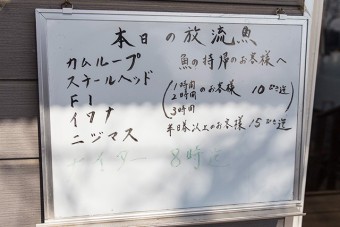 本日の放流魚
カムループ
スチールヘッド
F1
イワナ
ニジマス
魚の持帰のお客様へ
1時間
2時間のお客様 10匹迄
3時間
半日券以上のお客様 15匹迄
ナイター 8時迄